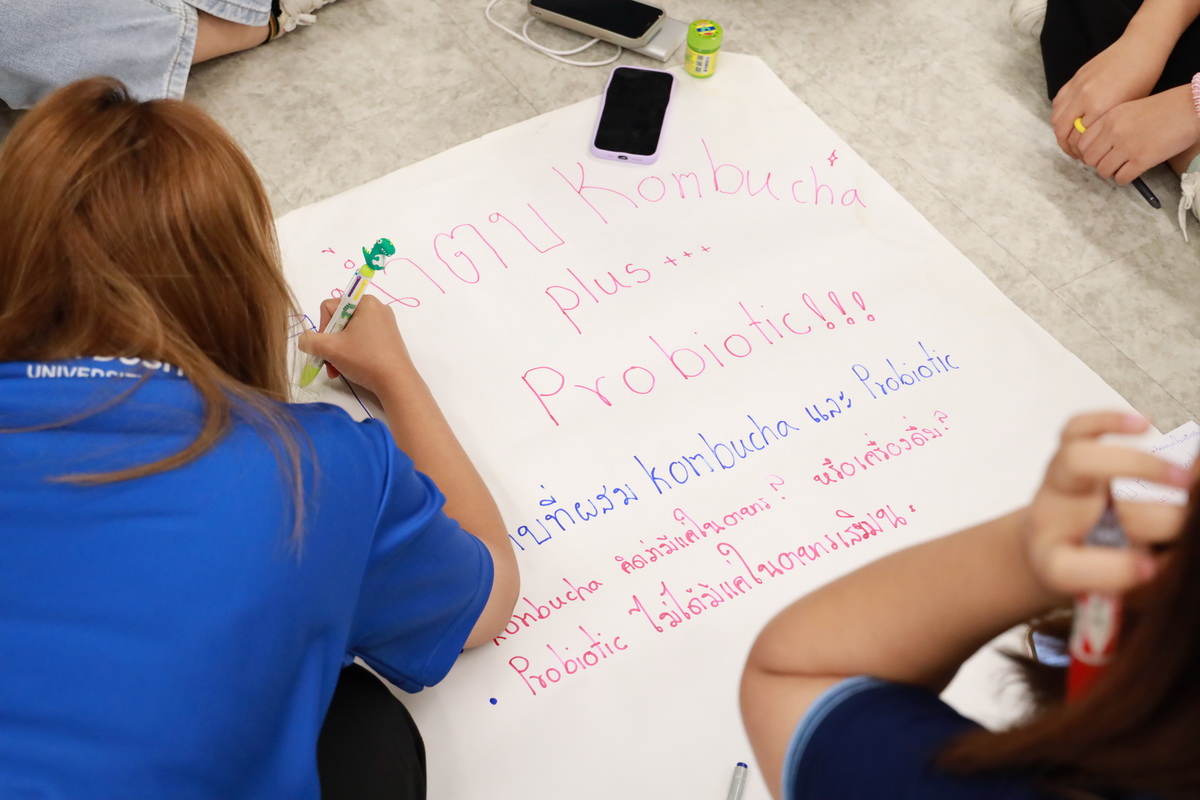 Kombucha
plus +++
Probiotic!!!
ที่ผสม kombucha และ Probiotic
kombucha คิดว่ามีแค่ในอาหาร? หรือเครื่องดื่ม?
• Probiotic ไม่ได้มีแค่ในอาหารเสริมนะ
UNIVERSIT